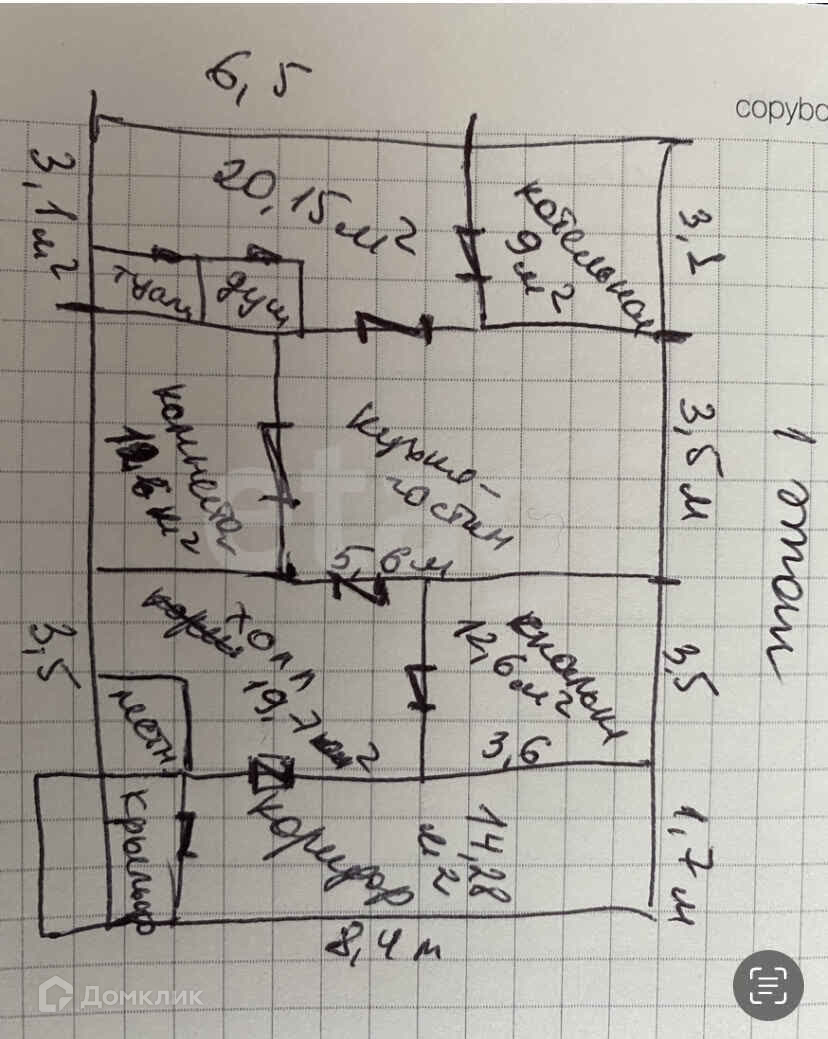 copybo
6,5
3,1 м²
20,15 м²
котельная
9 м²
3,1
туал
душ
комната
м²
кухня-
гостин
5,6 м
3,5 м
1 этаж
3,5
холл
19,7 м²
спальня
12,6 м²
3,6
3,5
лестн.
крыльцо
коридор
14,28
м²
1,7 м
8,4 м
Домклик